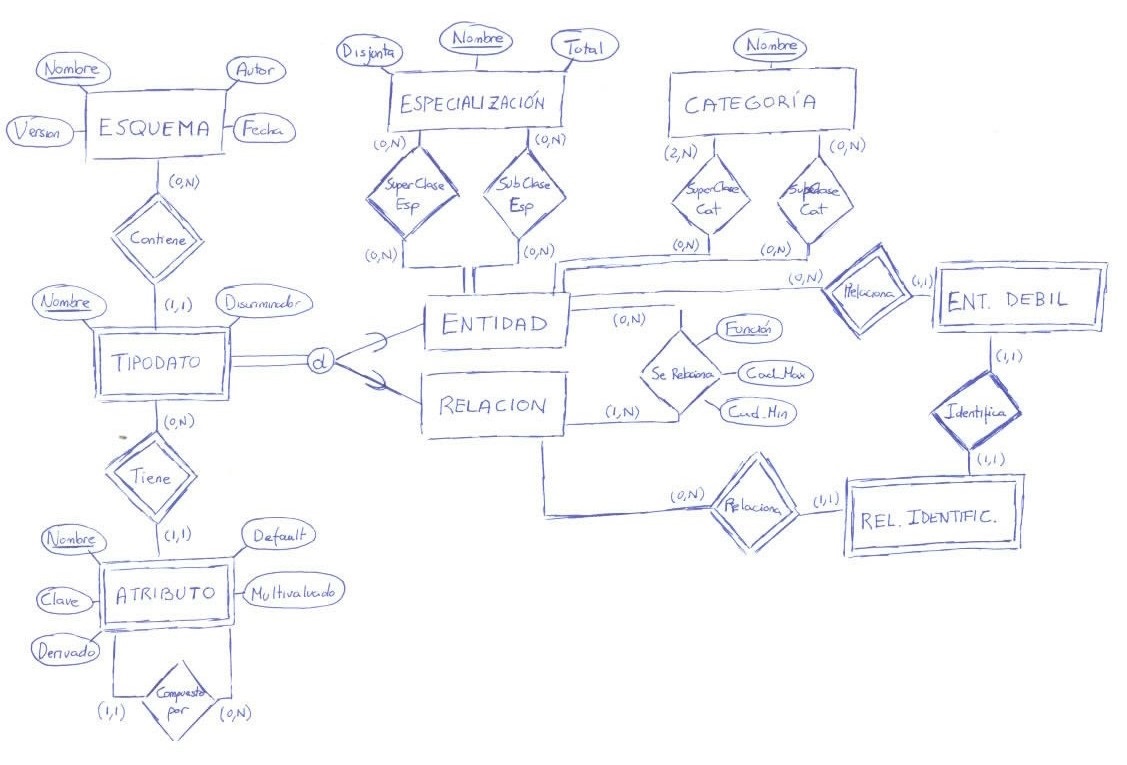 Nombre
Autor
Version
ESQUEMA
Fecha
(0,N)
Contiene
(1,1)
Nombre
Discriminador
TIPODATO
d
(0,N)
Tiene
(1,1)
Nombre
Default
Clave
ATRIBUTO
Multivaluado
Derivado
Compuesto
por
(1,1)
(0,N)
Disjonta
Nombre
Total
ESPECIALIZACIÓN
(0,N)
(0,N)
SuperClase
Esp
SubClase
Esp
(0,N)
(0,N)
Nombre
CATEGORÍA
(2,N)
(0,N)
SuperClase
Cat
Subclase
Cat
(0,N)
(0,N)
ENTIDAD
(0,N)
Relaciona
(1,1)
ENT. DEBIL
(0,N)
Función
Se Relaciona
Cad_Max
Card_Min
(1,N)
RELACION
(1,1)
Identifica
(1,1)
(0,N)
Relaciona
(1,1)
REL. IDENTIFIC.